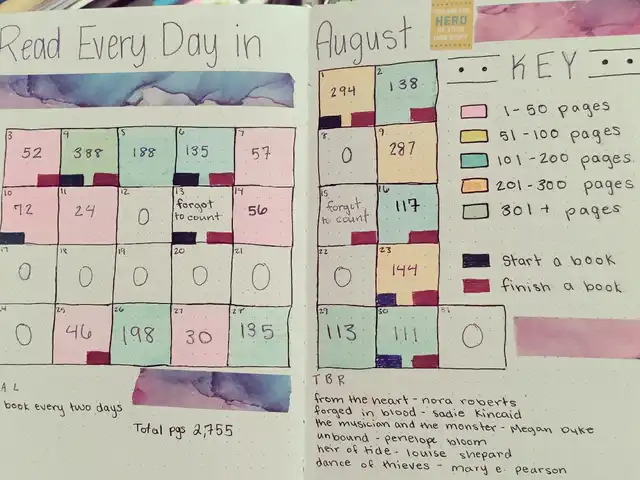 Read Every Day in August
HERO
KEY
1-50 pages
51-100 pages
101-200 pages
201-300 pages
301+ pages
start a book
finish a book
1 294
2 138
3 52
4 388
5 188
6 135
7 57
8 0
9 287
10 72
11 24
12 0
13 forgot to count
14 56
15 forgot to count
16 117
17 0
18 0
19 0
20 0
21 0
22 0
23 144
4 0
25 46
26 198
27 30
28 135
29 113
30 111
31 0
A L
book every two days
Total pgs 2,755
TBR
from the heart - nora roberts
forged in blood - sadie kincaid
the musician and the monster - Megan Duke
unbound - penelope bloom
heir of tide - louise shepard
dance of thieves - mary e. pearson